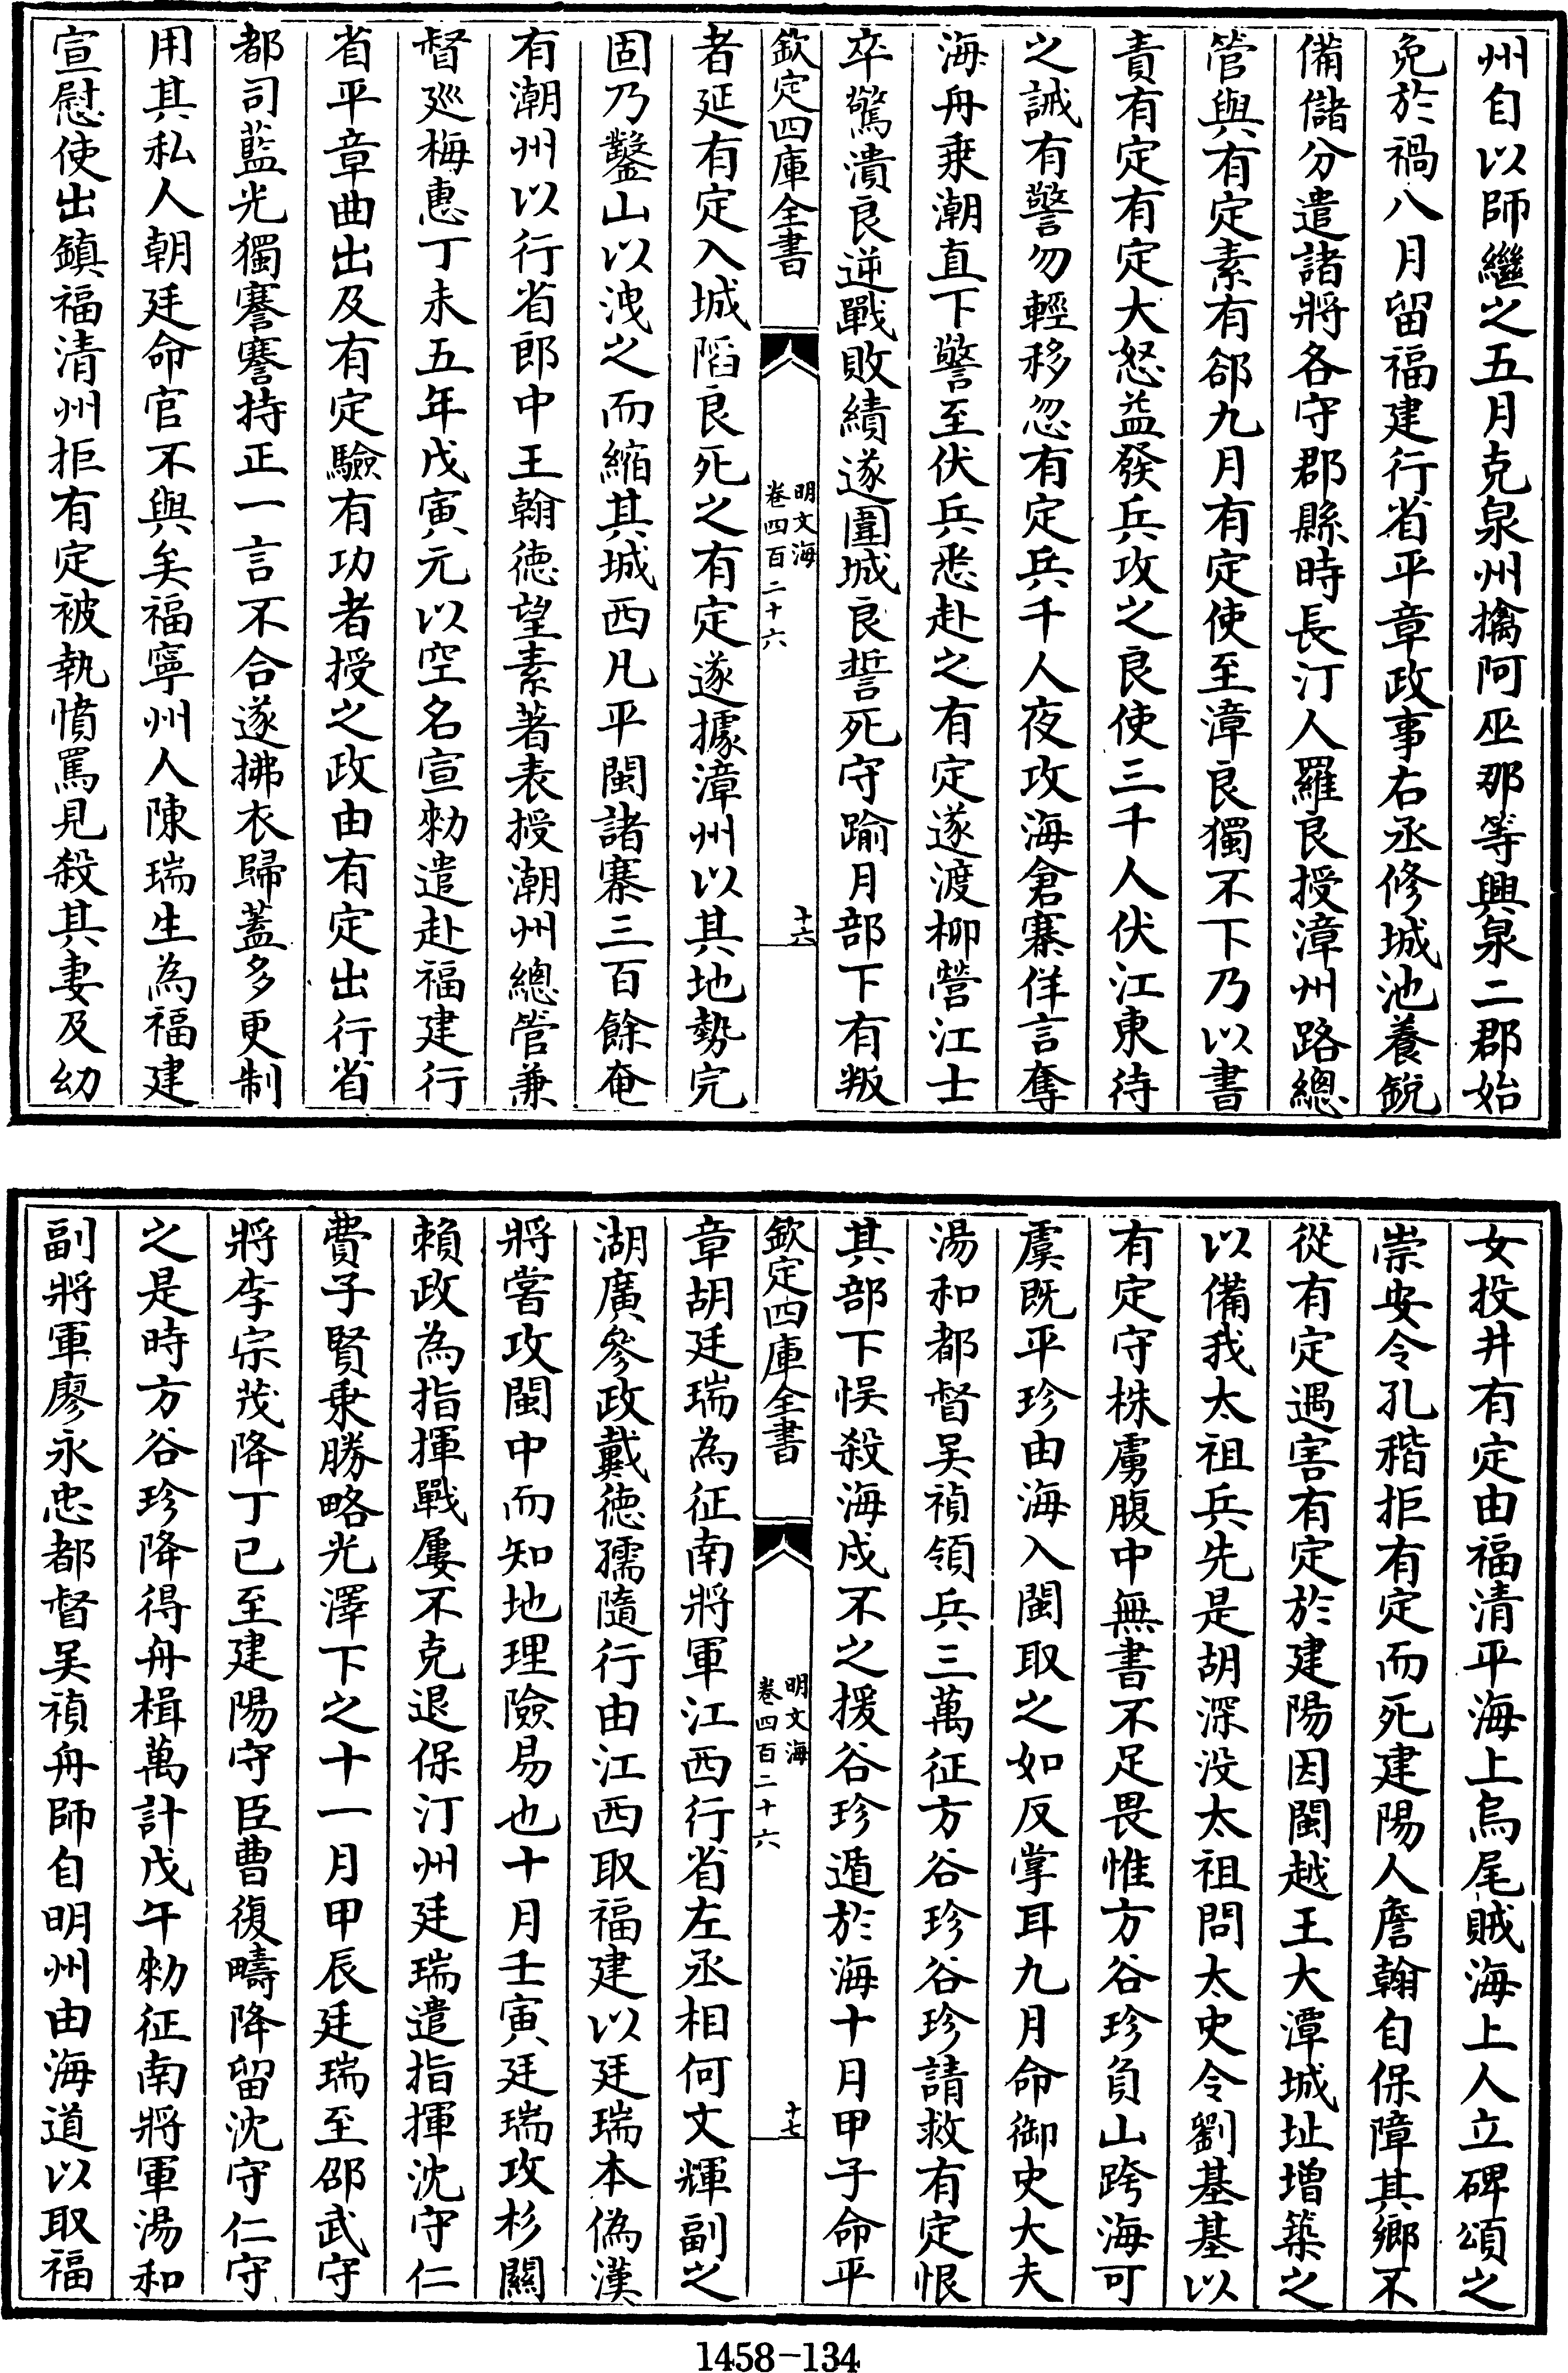 州自以師繼之五月克泉州擒阿巫那等興泉二郡始
免於禍八月留福建行省平章政事右丞修城池養銳
備儲分遣諸將各守郡縣時長汀人羅良授漳州路總
管與有定素有郤九月有定使至漳良獨不下乃以書
責有定有定大怒益發兵攻之良使三千人伏江東待
之誡有警勿輕移忽有定兵千人夜攻海倉寨佯言奪
海舟乗潮直下警至伏兵悉赴之有定遂渡柳營江士
卒驚潰良逆戰敗績遂圍城良誓死守踰月部下有叛
欽定四庫全書
明文海
卷四百二十六
十六
者延有定入城䧟良死之有定遂據漳州以其地勢完
固乃鑿山以洩之而縮其城西凡平閩諸寨三百餘奄
有潮州以行省郎中王翰德望素著表授潮州總管兼
督廵梅惠丁未五年戊寅元以空名宣勅遣赴福建行
省平章曲出及有定驗有功者授之政由有定出行省
都司藍光獨謇謇持正一言不合遂拂衣歸蓋多更制
用其私人朝廷命官不與矣福寧州人陳瑞生為福建
宣慰使出鎮福清州拒有定被執憤罵見殺其妻及幼
女投井有定由福清平海上烏尾賊海上人立碑頌之
崇安令孔稭拒有定而死建陽人詹翰自保障其鄉不
從有定遇害有定於建陽因閩越王大潭城址增築之
以備我太祖兵先是胡深没太祖問太史令劉基基以
有定守株虜腹中無書不足畏惟方谷珍負山跨海可
虞既平珍由海入閩取之如反掌耳九月命御史大夫
湯和都督吴禎領兵三萬征方谷珍谷珍請救有定恨
其部下悮殺海戍不之援谷珍遁於海十月甲子命平
欽定四庫全書
明文海
卷四百二十六
十七
章胡廷瑞為征南將軍江西行省左丞相何文輝副之
湖廣參政戴德孺隨行由江西取福建以廷瑞本偽漢
將嘗攻閩中而知地理險易也十月壬寅廷瑞攻杉關
賴政為指揮戰屢不克退保汀州廷瑞遣指揮沈守仁
費子賢乗勝略光澤下之十一月甲辰廷瑞至邵武守
將李宗茂降丁已至建陽守臣曹復疇降留沈守仁守
之是時方谷珍降得舟楫萬計戊午勅征南將軍湯和
副將軍廖永忠都督吴禎舟師自明州由海道以取福
1458-134